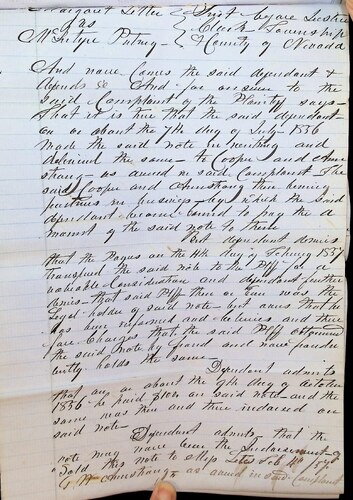 Margaret Litter } First before Justice
vs } Township
McIntyre Putney } County of Nevada
And now Comes the said dependant &
depends &c And for answer to the
said Complaint of the Plantiff says
that it is true that the said dependant
on or about the 7th day of July 1856
made the said note in writing and
delivered the same to Cooper and Arm
strong as avered in said Complaint The
said Cooper and Armstrong then being
partners in by which the said
dependant became bound to pay the a
mount of the said note to them
But dependant denies
that the on the 4th day of Febury 1857
transfered the said note to the Plff for a
valuable Consideration and dependant further
denies that said Plff then or ever was
legal holder of said note but avers that he
has been informed and believes and there
fore Charges that the said Plff obtained
the said note by fraud and now fraudu
lently holds the same
Dependant admits
that on or about the 9th day of October
1856 he paid on said note and the
same was then and there indorsed on
said note
Dependant admits that the
note may have been the Indorsement of
Sold this note to Miss Feb 4th 1857
Armstrong as avered in said Complaint